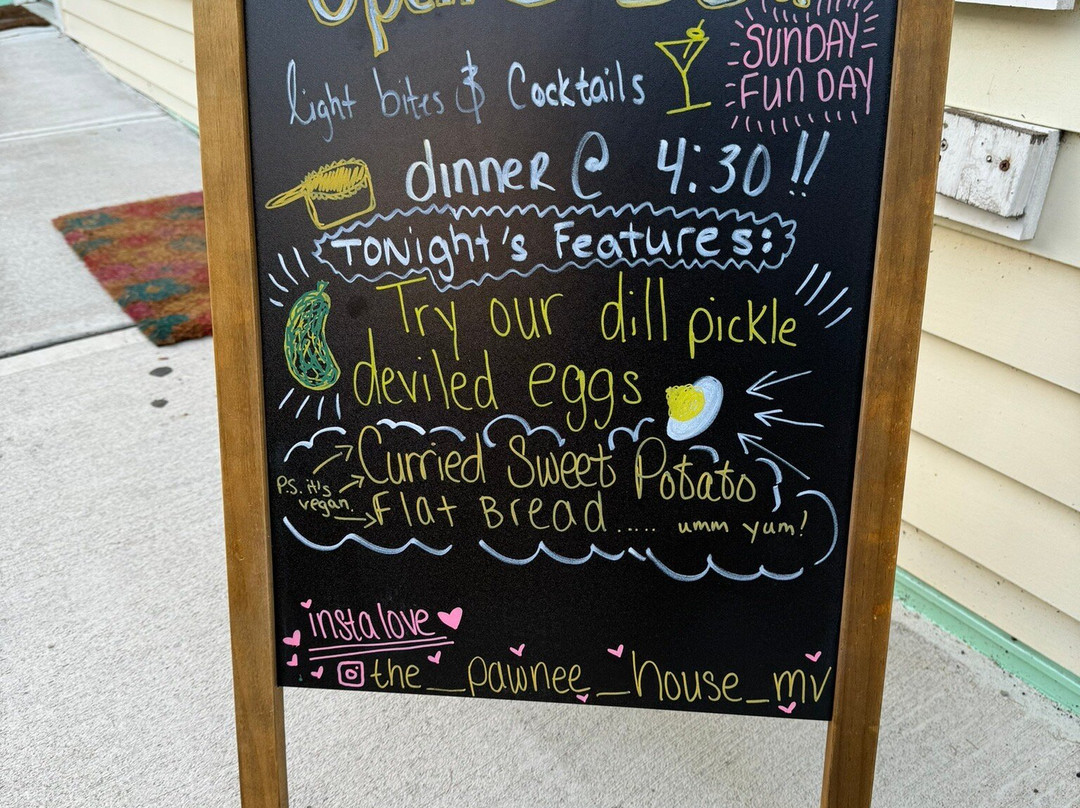 open
SUNDAY
FUN DAY
light bites & Cocktails
dinner @ 4:30!!
Tonight's Features:
Try our dill pickle
deviled eggs
Curried Sweet Potato
P.S. it's
vegan.
Flat Bread..... umm yum!
insta love
the_pawnee_house_mv